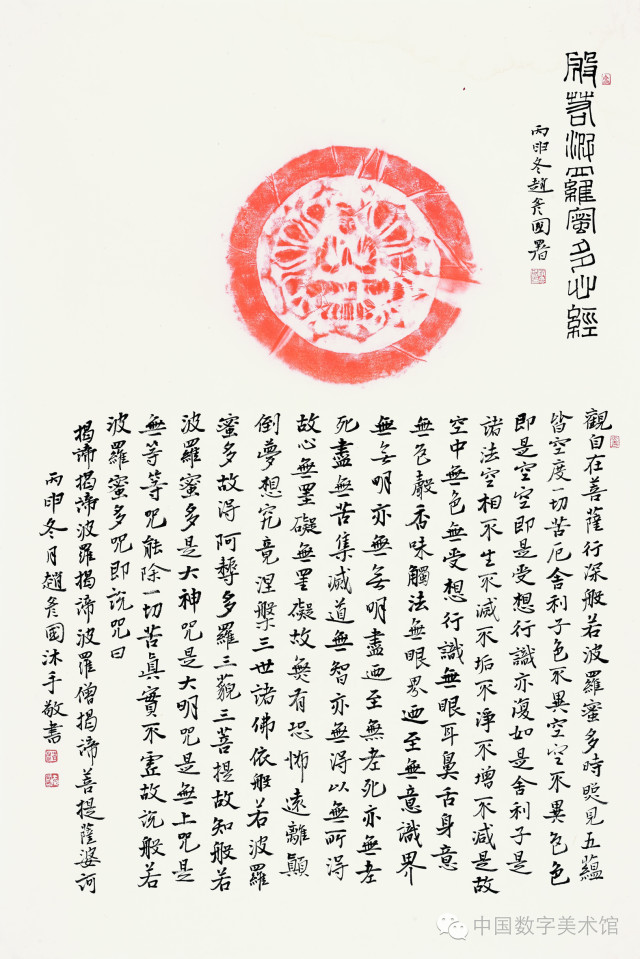 般若波羅蜜多心經
丙申冬趙彥國署
觀自在菩薩行深般若波羅蜜多時照見五蘊
皆空度一切苦厄舍利子色不異空空不異色色
即是空空即是受想行識亦復如是舍利子是
諸法空相不生不滅不垢不淨不增不減是故
空中無色無受想行識無眼耳鼻舌身意
無色聲香味觸法無眼界迺至無意識界
無無明亦無無明盡迺至無老死亦無老
死盡無苦集滅道無智亦無得以無所得
故心無罣礙無罣礙故無有恐怖遠離顛
倒夢想究竟涅槃三世諸佛依般若波羅
蜜多故得阿耨多羅三藐三菩提故知般若
波羅蜜多是大神咒是大明咒是無上咒是
無等等咒能除一切苦真實不虛故說般若
波羅蜜多咒即說咒曰
揭諦揭諦波羅揭諦波羅僧揭諦菩提薩婆訶
丙申冬月趙彥國沐手敬書
中国数字美术馆